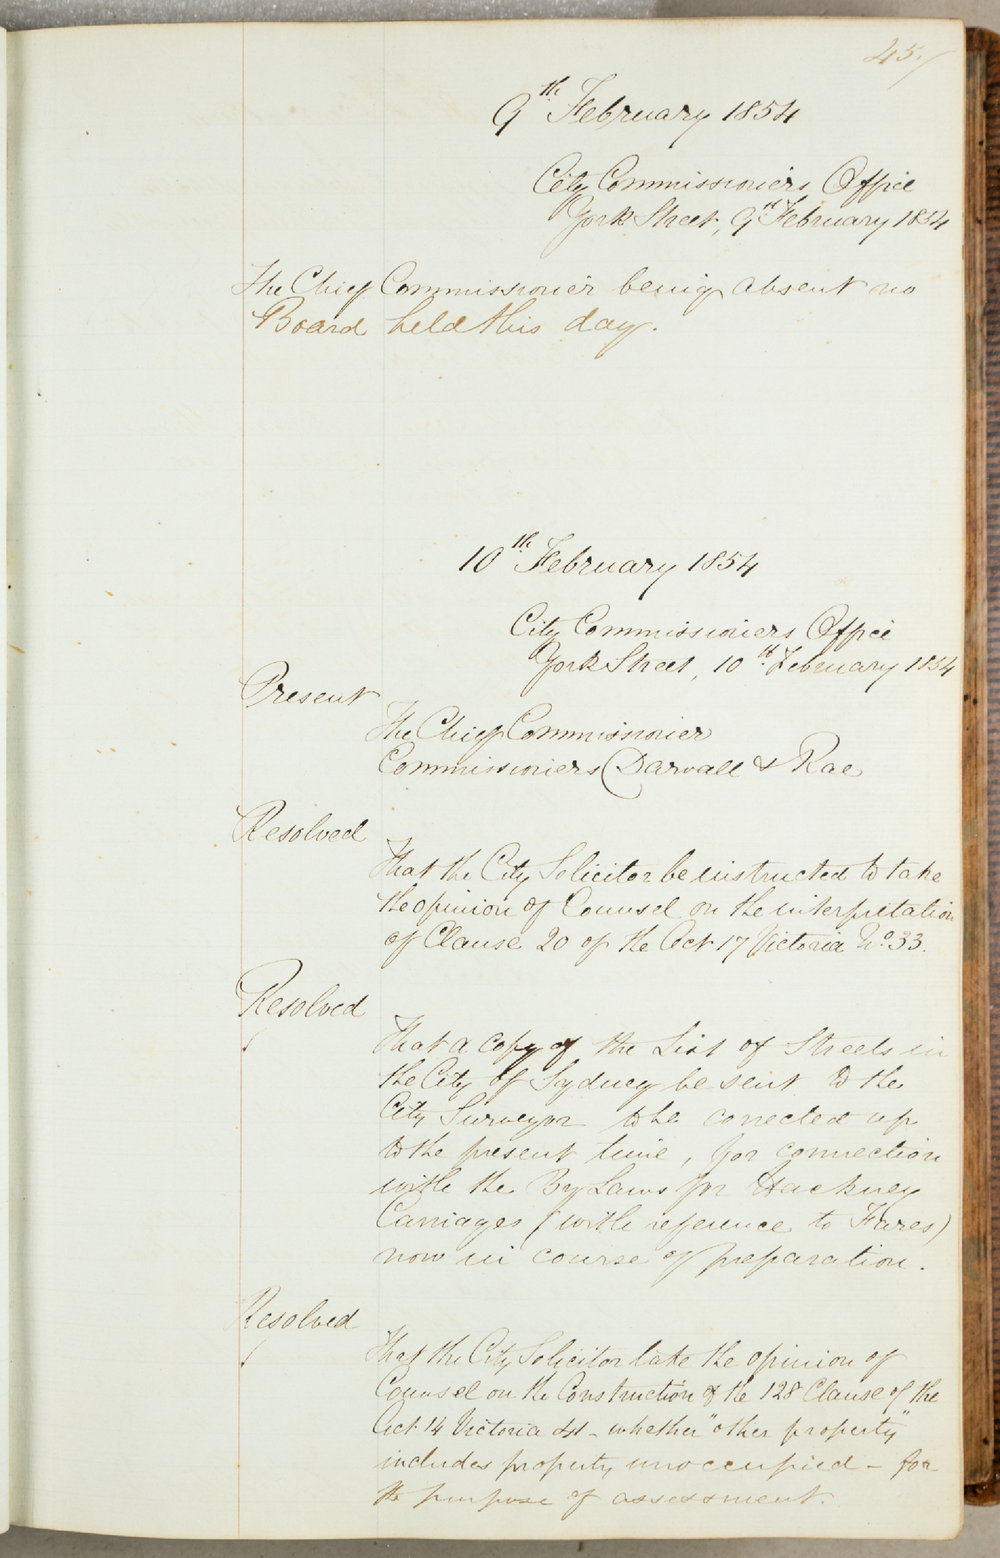 45./
9th February 1854
City Commissioners Office
York Street, 9th February 1854
The Chief Commissioner being absent no
Board held this day.
10th February 1854
City Commissioners Office
York Street, 10th February 1854
Present
The Chief Commissioner
Commissioners Darvall & Rae
Resolved
That the City Solicitor be instructed to take
the opinion of Counsel on the interpretation
of Clause 20 of the Act 17 Victoria No. 33.
Resolved
That a copy of the List of Streets in
the City of Sydney be sent to the
City Surveyor to be corrected up
to the present time, for connection
with the By Laws for Hackney
Carriages (with reference to Fares)
now in course of preparation.
Resolved
That the City Solicitor take the opinion of
Counsel on the Construction of the 128 Clause of the
Act 14 Victoria 41 - whether "other property"
includes property unoccupied - for
the purpose of assessment.